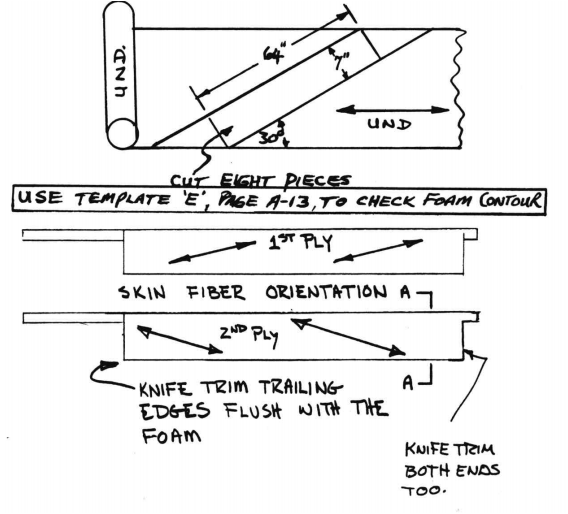 UND
64"
7"
30°
UND
CUT EIGHT PIECES
USE TEMPLATE 'E', PAGE A-13, TO CHECK FOAM CONTOUR
1ST PLY
SKIN FIBER ORIENTATION A
2ND PLY
A
KNIFE TRIM TRAILING
EDGES FLUSH WITH THE
FOAM
KNIFE TRIM
BOTH ENDS
TOO.